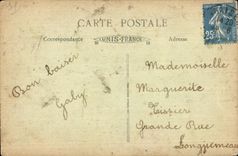 CARTE POSTALE
Correspondance
UNIS-FRANCE
Adresse
25
Bon baiser
Gaby
Mademoiselle
Marguerite
Tissier
Grande Rue
Longjumeau